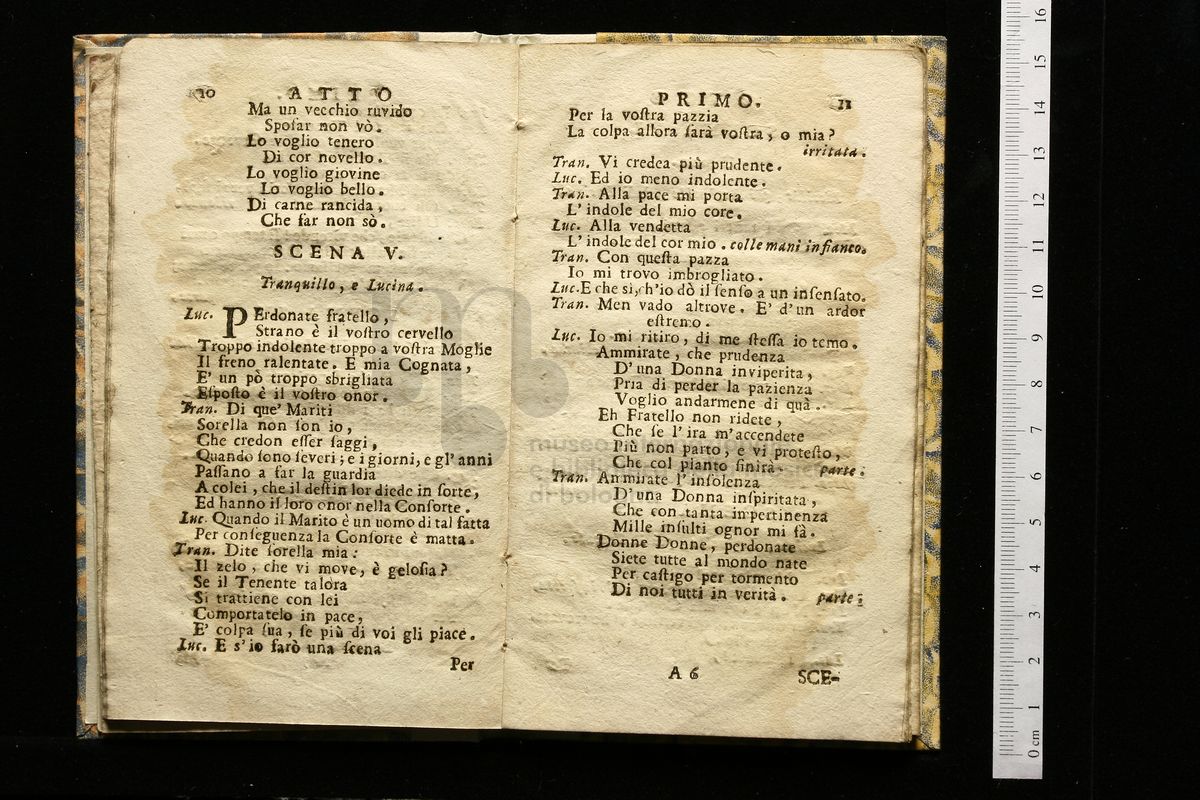 10 ATTO
Ma un vecchio ruvido
Spoſar non vò.
Lo voglio tenero
Di cor novello.
Lo voglio giovine
Lo voglio bello.
Di carne rancida,
Che far non sò.
SCENA V.
Tranquillo, e Lucina.
Luc. PErdonate fratello,
Strano è il voſtro cervello
Troppo indolente troppo a voſtra Moglie
Il freno ralentate. E mia Cognata,
E' un pò troppo sbrigliata
Eſpoſto è il voſtro onor.
Tran. Di que' Mariti
Sorella non ſon io,
Che credon eſſer ſaggi,
Quando ſono ſeveri; e i giorni, e gl' anni
Paſſano a far la guardia
A colei, che il deſtin lor diede in ſorte,
Ed hanno il loro onor nella Conſorte.
Luc. Quando il Marito è un uomo di tal fatta
Per conſeguenza la Conſorte è matta.
Tran. Dite ſorella mia:
Il zelo, che vi move, è geloſia?
Se il Tenente talora
Si trattiene con lei
Comportatelo in pace,
E' colpa ſua, ſe più di voi gli piace.
Luc. E s'io farò una ſcena
Per
PRIMO. 11
Per la voſtra pazzia
La colpa allora ſarà voſtra, o mia?
irritata.
Tran. Vi credea più prudente.
Luc. Ed io meno indolente.
Tran. Alla pace mi porta
L' indole del mio core.
Luc. Alla vendetta
L' indole del cor mio. colle mani in fianco.
Tran. Con queſta pazza
Io mi trovo imbrogliato.
Luc. E che sì, ch'io dò il ſenſo a un inſenſato.
Tran. Men vado altrove. E' d'un ardor
eſtremo.
Luc. Io mi ritiro, di me ſteſſa io temo.
Ammirate, che prudenza
D' una Donna inviperita,
Pria di perder la pazienza
Voglio andarmene di quà.
Eh Fratello non ridete,
Che ſe l' ira m'accendete
Più non parto, e vi proteſto,
Che col pianto finirà. parte.
Tran. Ammirate l' inſolenza
D' una Donna inſpiritata,
Che con tanta impertinenza
Mille inſulti ognor mi fà.
Donne Donne, perdonate
Siete tutte al mondo nate
Per caſtigo per tormento
Di noi tutti in verità. parte:
A 6 SCE-
museo
di bologna
16
15
14
13
12
11
10
9
8
7
6
5
4
3
2
1
0 cm